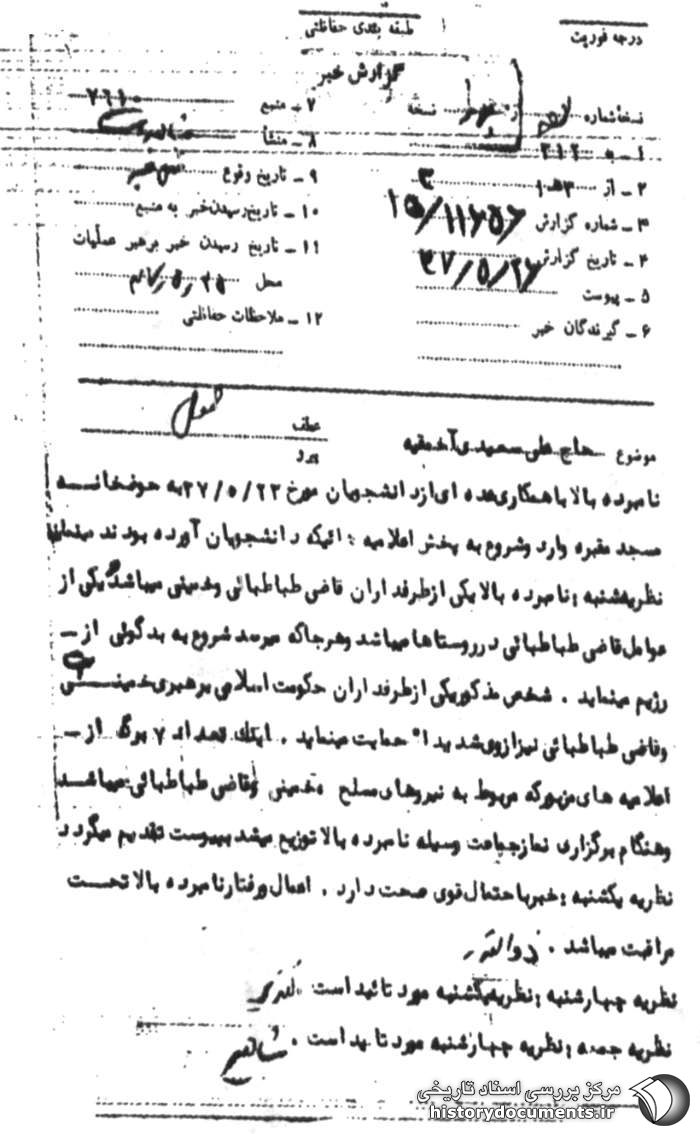 درجه فوریت
طبقه بندی حفاظتی
گزارش خبر
نسخه شماره از نسخه
۱ ـ به ۳۱۲
۲ ـ از ۱۰ه۳
۳ ـ شماره گزارش
۴ ـ تاریخ گزارش
۵ ـ پیوست
۶ ـ گیرندگان خبر
۷ ـ منبع ۷۶۱۰
۸ ـ منشأ
۹ ـ تاریخ وقوع
۱۰ ـ تاریخ رسیدن خبر به منبع
۱۱ ـ تاریخ رسیدن خبر برهبر عملیات
محل
۱۲ ـ ملاحظات حفاظتی
موضوع حاج علی سعیدی آخمقیه
عطف
پیرو
نامبرده بالا با همکاری عده ای از دانشجویان مورخ ۳۷/۵/۲۲ به حوضخانه
مسجد مقبره وارد و شروع به پخش اعلامیه : ائیکه دانشجویان آورده بودند مینماید
نظریه شنبه ؛ نامبرده بالا یکی از طرفداران قاضی طباطبائی و خمینی میباشد و یکی از
عوامل قاضی طباطبائی در روستاها میباشد و هرجا که میرسد شروع به بدگوئی از ـ
رژیم مینماید . شخص مذکور یکی از طرفداران حکومت اسلامی برهبری خمینی است
و قاضی طباطبائی نیز از وی شدیدا" حمایت مینماید . اینك تعداد ۷ برگ از ـ
اعلامیه های مزبور که مربوط به نیروهای مسلح ، خمینی و قاضی طباطبائی میباشد
و هنگام برگزاری نماز جماعت وسیله نامبرده بالا توزیع میشد بپیوست تقدیم میگردد
نظریه یکشنبه ؛ خبر باحتمال قوی صحت دارد . اعمال و رفتار نامبرده بالا تحت
مراقبت میباشد .
نظریه چهارشنبه ؛ نظریه یکشنبه مورد تائید است .
نظریه جمعه ؛ نظریه چهارشنبه مورد تایید است .
مرکز بررسی اسناد تاریخی
historydocuments.ir